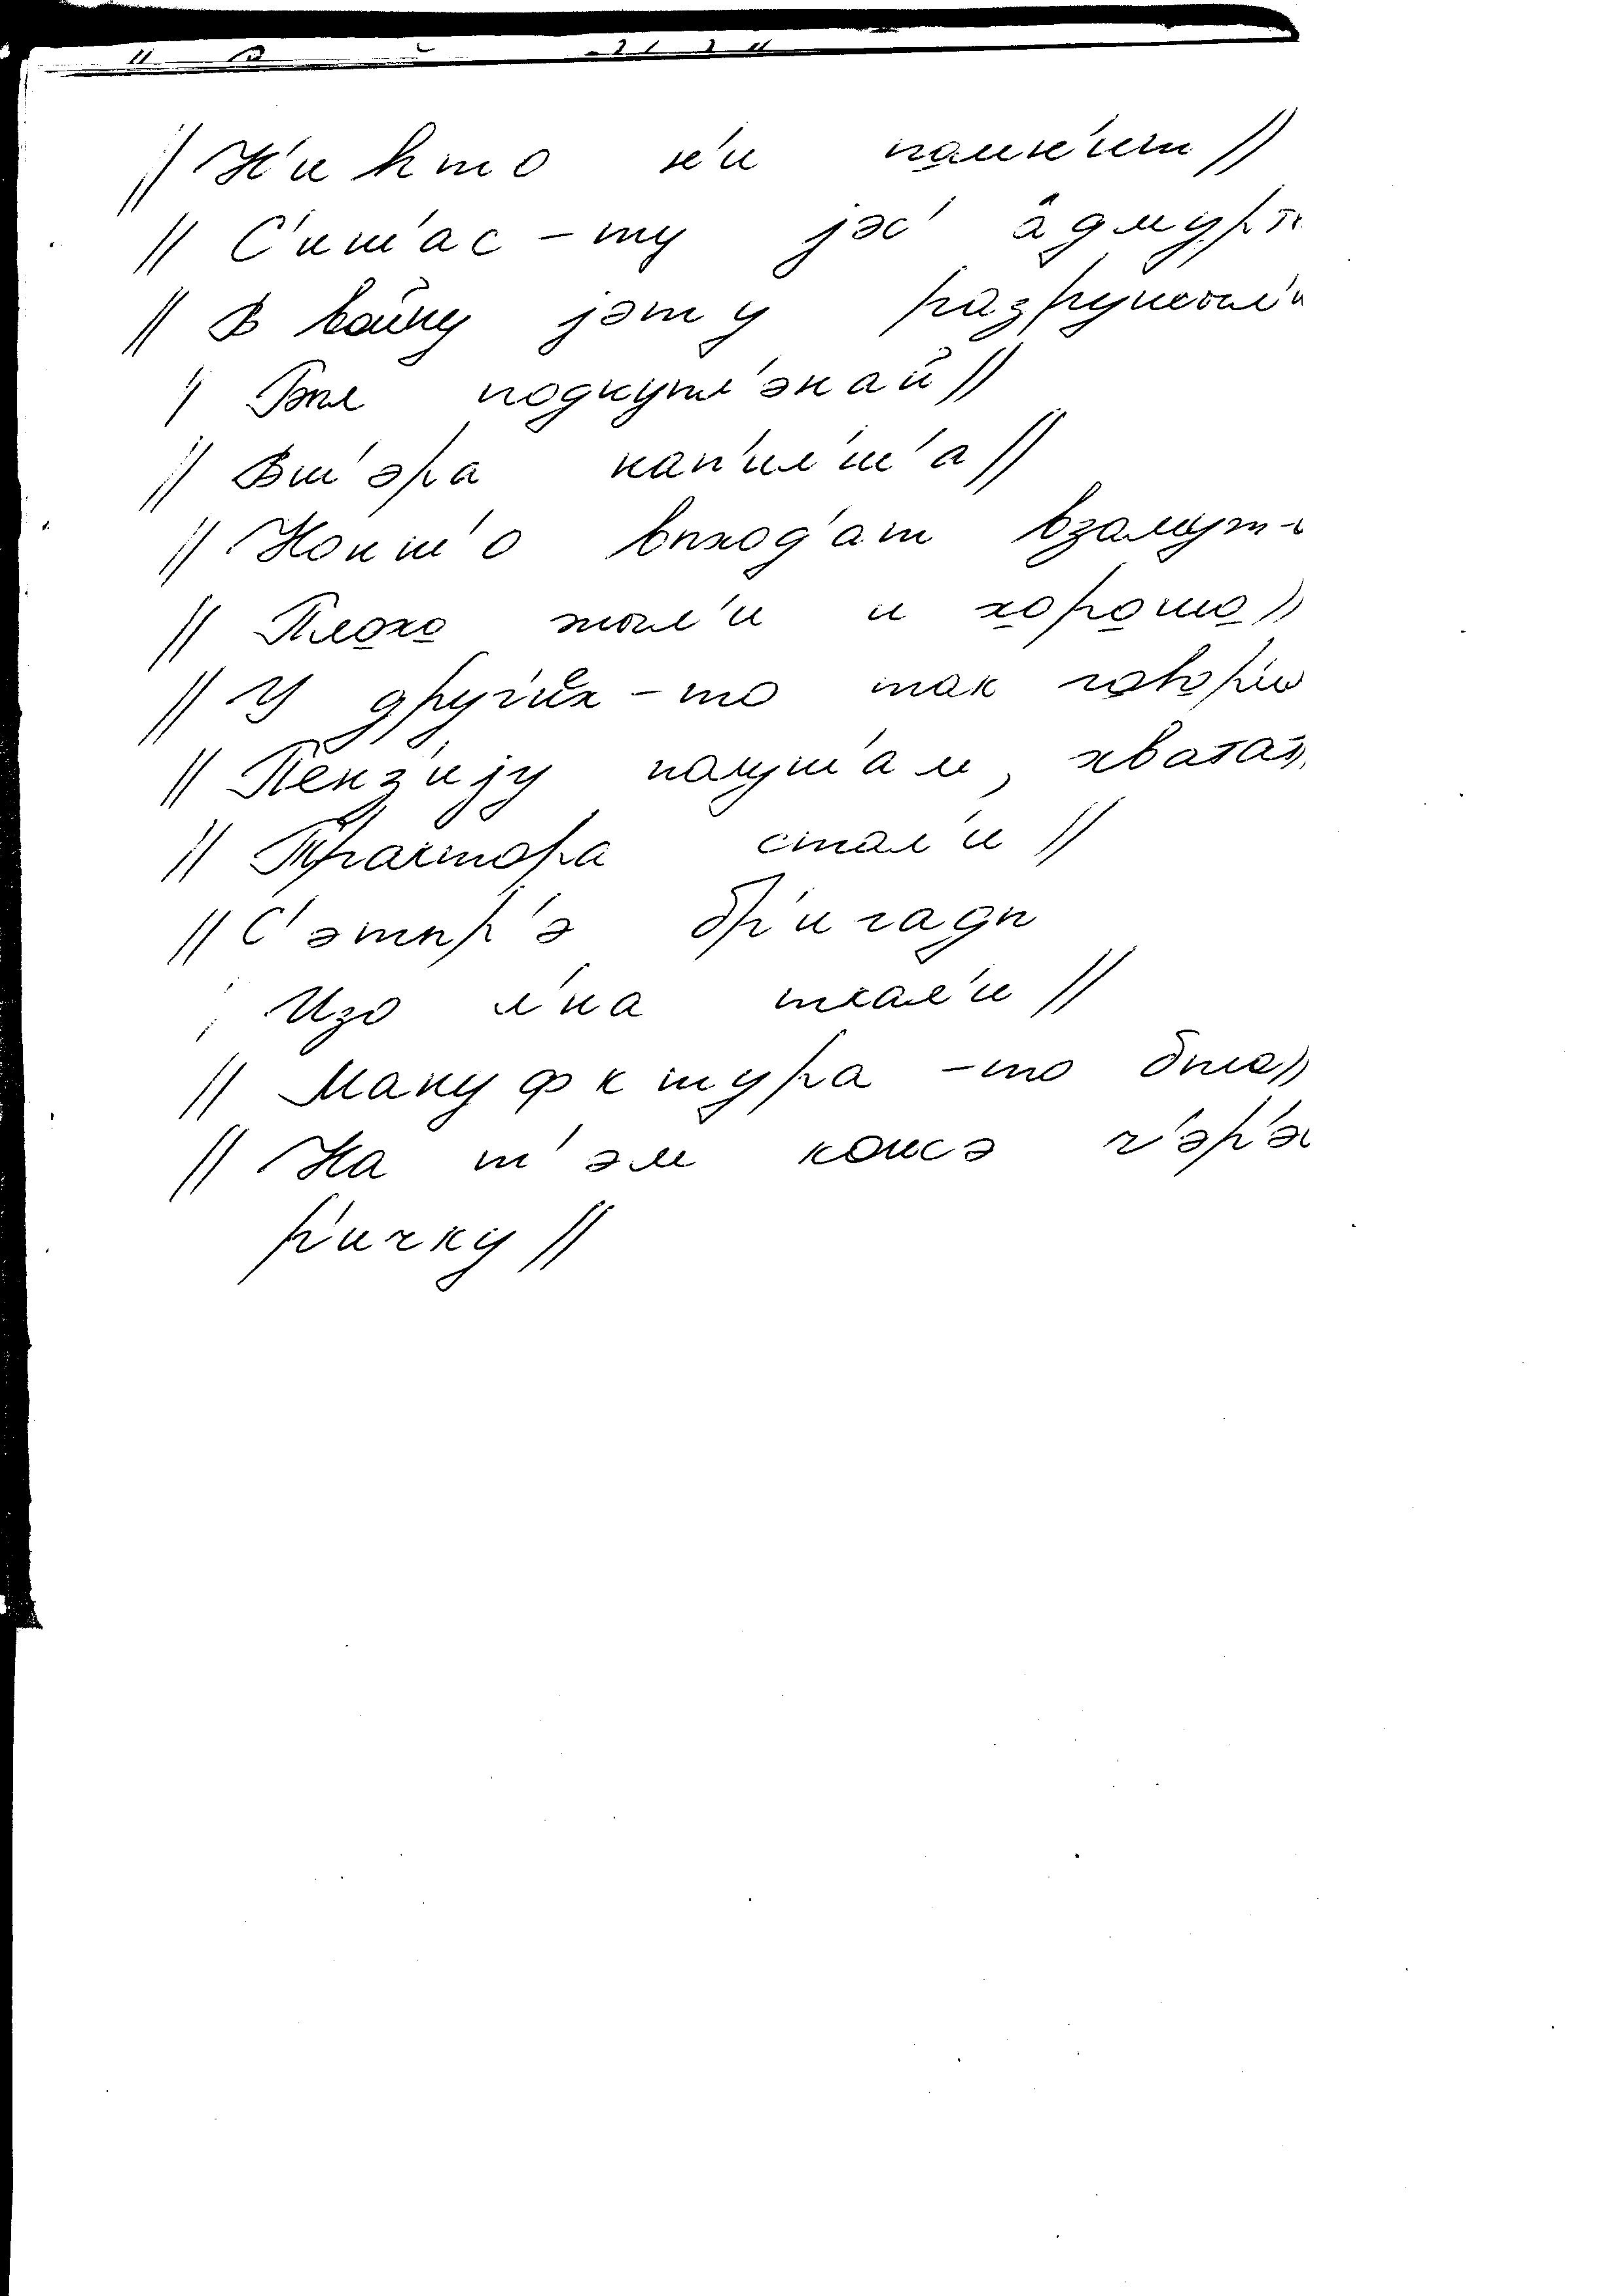 // Н'и кто н'и помн'ит //
// С'иш'ас - ту јэс'
// В войну јэту разрушыл'и
подкул'энай //
// Вш'эра нап'ил'ш'а //
// Нонш'о выход'ат взамуж
// Плохо жыл'и и хорошо //
// У друг'их - то так говор'
// Пенз'ију полуш'ам, хватат
// Трактора стал'и //
// С'этыр'э бр'игады
Изо л'на ткал'и //
// Мануфктура - то была //
// На т'эм концэ ч'эр'э
р'ичку //